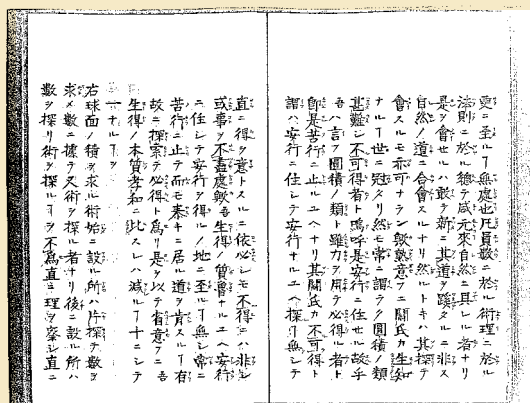 更ニ至ルヿ無處也凡員數ニ於ル術理ニ於ル
法則ニ於ル德テ咸元來自然ニ具レル者ナリ
是ヲ會セルハ敢テ新ニ其道ヲ蹊スルニ非ス
自然ノ道ニ合會スルナリ然ルトキハ其探テ
會スルモ亦可ナラン歟熟意フニ關氏カ生知
ナルヿ世ニ冠タリ然モ常ニ謂ラク圓積ノ類
甚難シ不可得者ト嗚呼是安行ニ住セル故乎
吾ハ言フ圓積ノ類ト雖力ヲ用テ必得ル者ト
卽是苦行ニ止ルユヘナリ其關氏カ不可得ト
謂ハ安行ニ住シテ安行ナルユヘ探ヿ無シテ
直ニ得ヲ意トスルニ依必シモ不得ニハ非シ
或事ヲ不盡處歟吾生得ノ質魯ナルユヘ安行
ニ住シテ安行ヲ得ルノ地ニ至ルヿ無シ常ニ
苦行ニ止テ而モ泰キニ居ル道ヲ肯スルヿ有
故ニ探索テ必得ト爲リ是ヲ以テ省意フニ吾
生得ノ本質孝和ニ此スレハ減ルヿ十ニシテ
一ナルヿヲ
右球面ノ積ヲ求ル術始ニ設ル所ハ片探テ數ヲ
求メ數ニ據テ又術ヲ探ル者ナリ後ニ設ル所ハ
數ヲ探リ術ヲ探ルヿヲ不爲直ニ理ヲ察シ直ニ